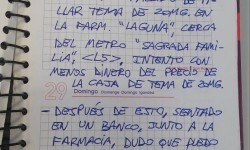 LLAR TEMA DE 20MG. EN
LA FARM. "LAGUNA", CERCA
DEL METRO "SAGRADA FAMI-
LIA", <L5>, INTENTO CON
MENOS DINERO DEL PRECIO DE
LA CAJA DE TEMA DE 20MG.
29 Domingo
- DESPUÉS DE ESTO, SENTADO
EN UN BANCO, JUNTO A LA
FARMACIA, DUDO QUE PUEDO